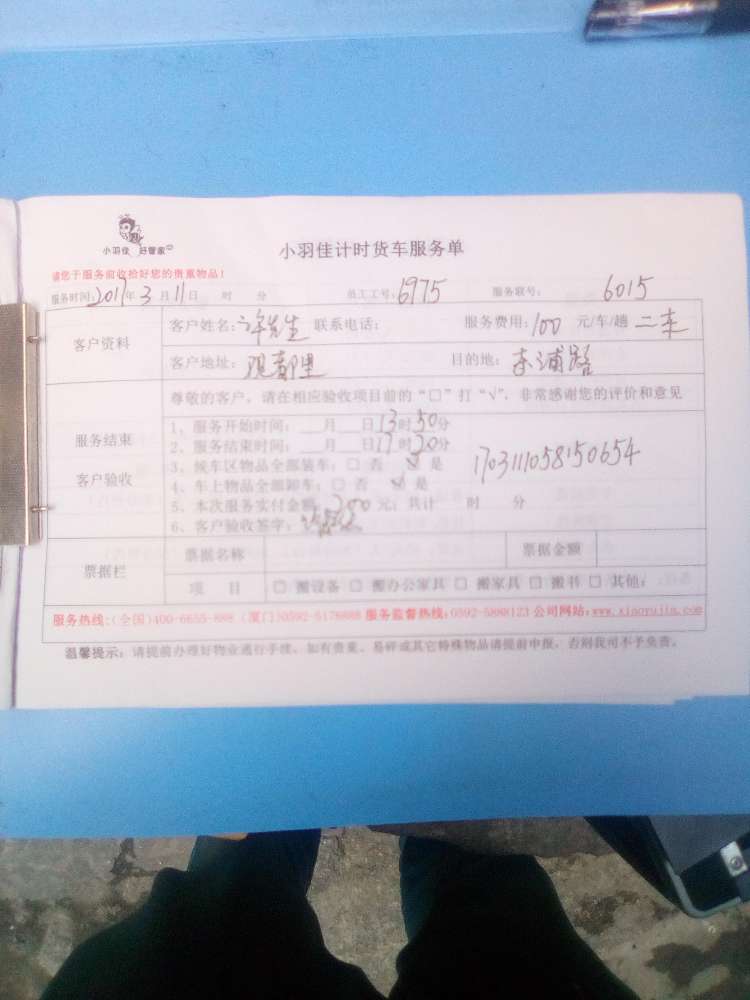 小羽佳 好管家
小羽佳计时货车服务单
请您于服务前收拾好您的贵重物品!
服务时间: 2017年 3 月 11 日 时 分 员工工号: 6975 服务联号: 6015
客户资料
客户姓名: 许先生 联系电话: 服务费用: 100 元/车/趟 二车
客户地址: 目的地: 东浦路
尊敬的客户,请在相应验收项目前的“□”打“√”,非常感谢您的评价和意见
服务结束
客户验收
1、服务开始时间: 月 日 13 时 50 分
2、服务结束时间: 月 日 17 时 20 分
3、候车区物品全部装车: □ 否 ✓ 是
4、车上物品全部卸车: □ 否 ✓ 是
1703111058150654
5、本次服务实付金额: 200 元; 共计 时 分
6、客户验收签字:
票据栏
票据名称 票据金额
项 目 □ 搬设备 □ 搬办公家具 □ 搬家具 □ 搬书 □ 其他:
服务热线:(全国)400-6655-888 (厦门)0592-5176888 服务监督热线:0592-5888123 公司网站:www.xiaoyujia.com
温馨提示: 请提前办理好物业通行手续。如有贵重、易碎或其它特殊物品请提前申报,否则我司不予免责。